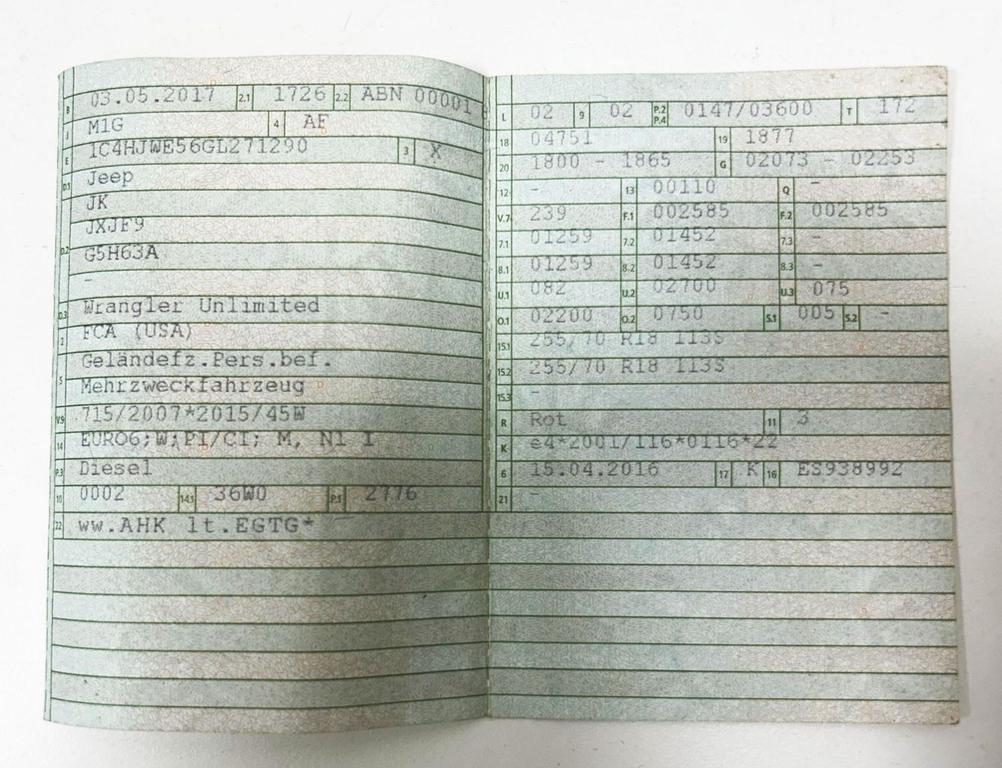 B 03.05.2017 2.1 1726 2.2 ABN 00001
J M1G 4 AF
E 1C4HJWE56GL271290 3 X
D.1 Jeep
JK
D.2 JXJF9
G5H63A
-
D.3 Wrangler Unlimited
2 FCA (USA)
5 Geländefz.Pers.bef.
Mehrzweckfahrzeug
V.9 715/2007*2015/45W
14 EURO6;W;PI/CI; M, N1 I
P.3 Diesel
10 0002 14.1 36W0 P.1 2776
22 ww.AHK lt.EGTG*
L 02 9 02 P.2 P.4 0147/03600 T 172
18 04751 19 1877
20 1800 - 1865 G 02073 - 02253
12 - 13 00110 Q -
V.7 239 F.1 002585 F.2 002585
7.1 01259 7.2 01452 7.3 -
8.1 01259 8.2 01452 8.3 -
U.1 082 U.2 02700 U.3 075
O.1 02200 O.2 0750 S.1 005 S.2 -
15.1 255/70 R18 113S
15.2 255/70 R18 113S
15.3 -
R Rot 11 3
K e4*2001/116*0116*22
6 15.04.2016 17 K 16 ES938992
21 -